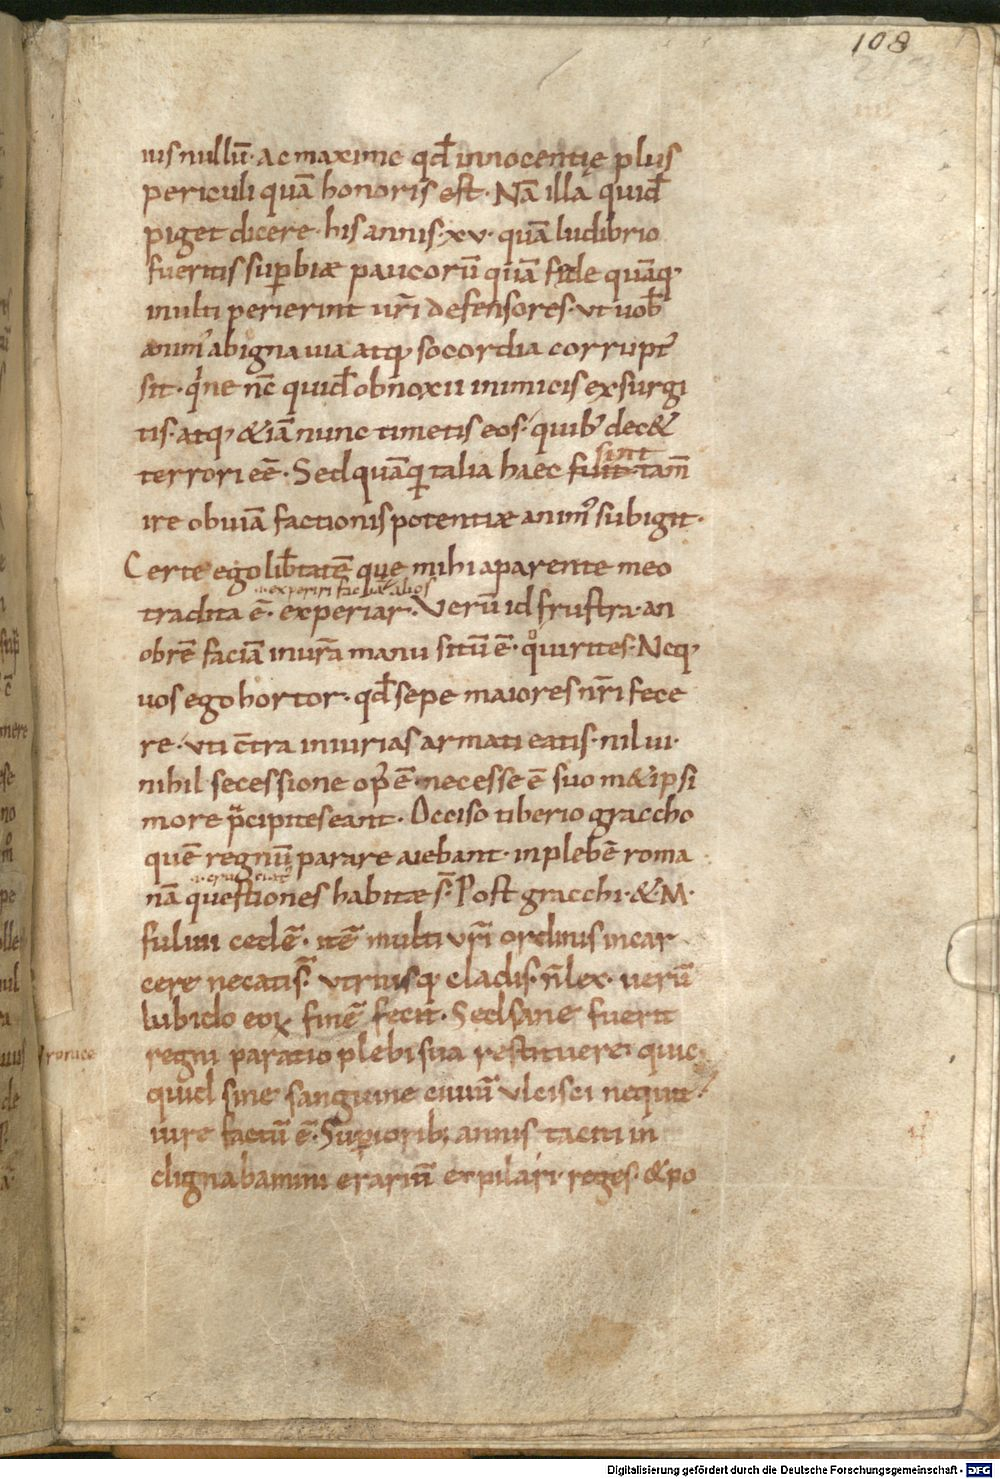 108
ius nullū· Ac maxime qđ innocentię plus
periculi quā honoris est· Nā illa quiđ
piget dicere· his annis· xv· quā ludibrio
fueritis suꝑbiæ paucorū quā fede quāq·
multi perierint ur̄i defensores· ut uob̄
anim' ab ignauia atq· socordia corrupt'
sit· q̇ ne nc̄ quiđ obnoxii inimicis exsurgi
tis· atq· &iā nunc timetis eos· quib' dec&
sint
terrori eē· Sed quāq̇ talia haec fuit· tam̄
ire obuiā factionis potentiæ anim' subigit·
Certe ego lib̄tatē quę mihi a parente meo
.i. experiri faciā alios
tradita ē· experiar· Verū id frustra· an
ob rē faciā in ur̄a manu sitū ē· q̊uirites· Neq·
uos ego hortor· qđ sepe maiores nr̄i fece
re· uti c̄tra iniurias armati eatis· nil ui·
nihil secessione op' ē· necesse ē suo m& ipsi
more p̄cipites eant· Occiso tiberio graccho
quē regnū parare aiebant· in plebē roma
nā questiones habitæ s̄· Post gracchi· & M·
fuluii cedē· itē multi ur̄i ordinis in car
cere necati s̄· utriusq· cladis· n̄ lex· uerū
lubido eoꝝ finē fecit· Sed sane fuerit
regni paratio plebi sua restituere· quic
quid sine sanguine ciuiū ulcisci nequit·
iure factū ē· Suꝑiorib; annis taciti in
dignabamini erariū expilari· reges· & po
Digitalisierung gefördert durch die Deutsche Forschungsgemeinschaft - DFG